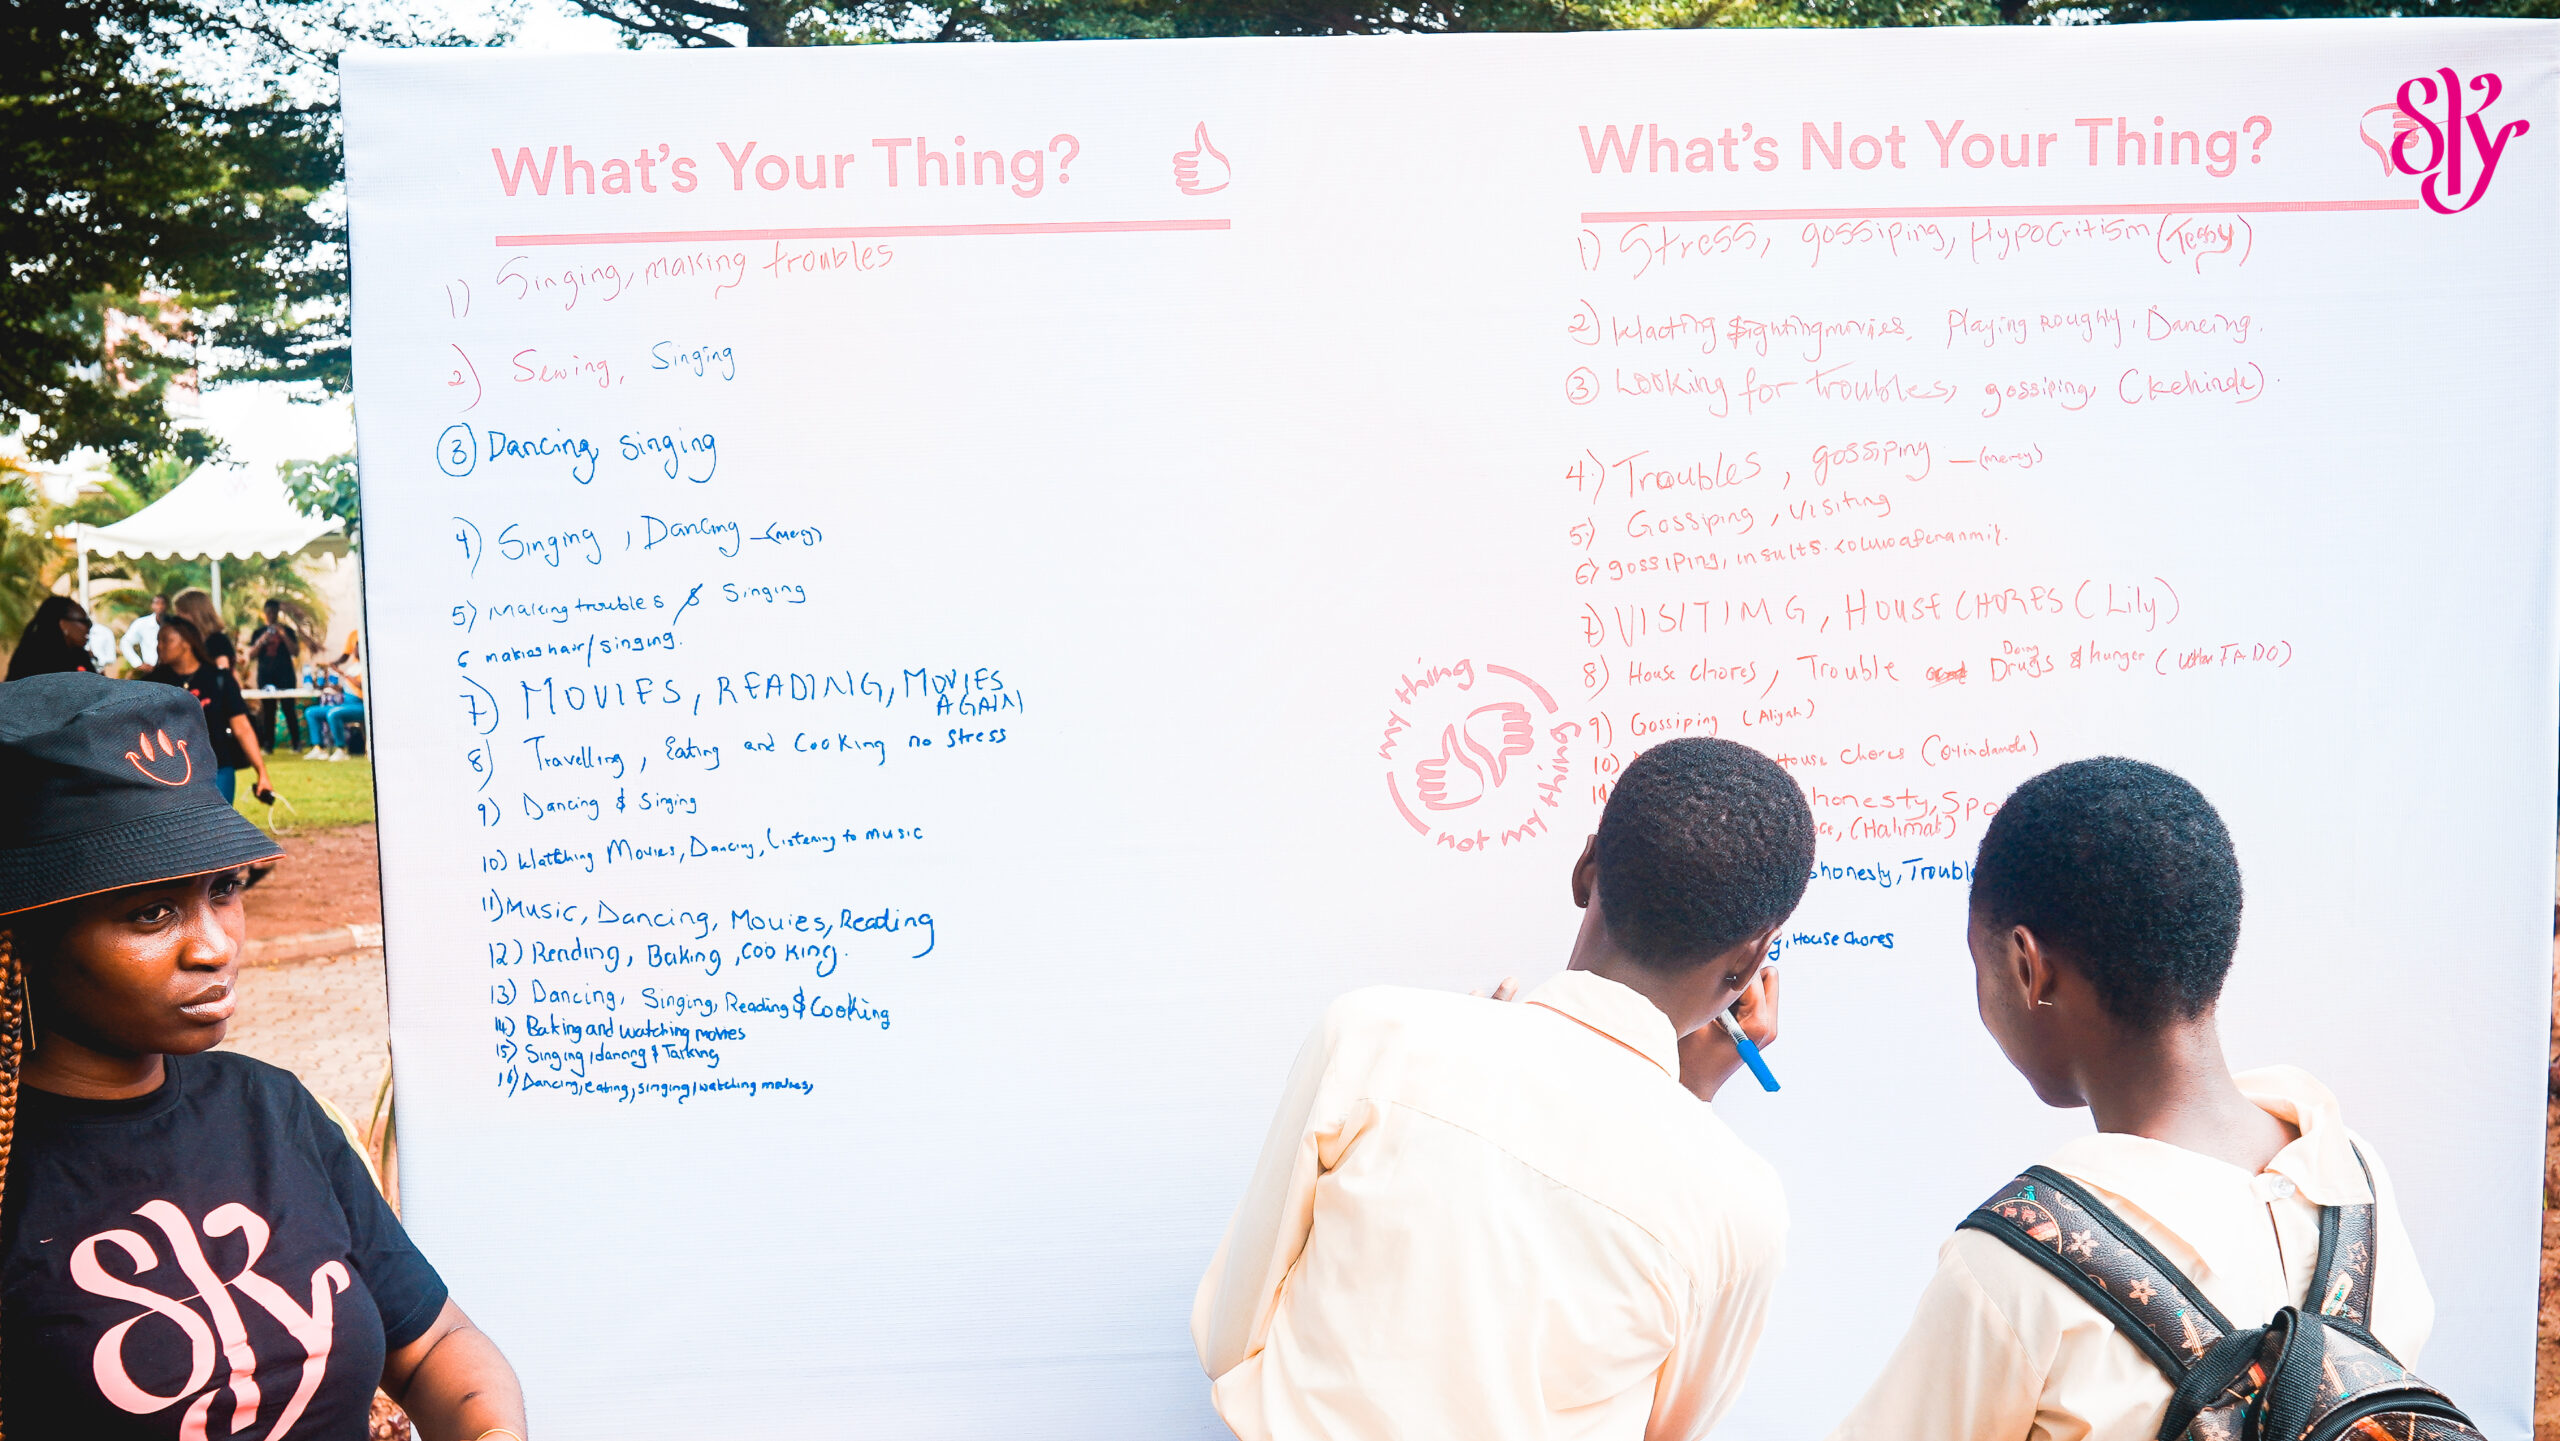 What's Your Thing?
1) Singing, making troubles
2) Sewing, Singing
3 Dancing, Singing
4) Singing, Dancing
5) Making troubles & Singing
6 making hair/singing.
7) MOVIES, READING, MOVIES AGAIN
8) Travelling, Eating and Cooking no stress
9) Dancing & Singing
10) Watching Movies, Dancing, Listening to music
11) Music, Dancing, Movies, Reading
12) Reading, Baking, Cooking.
13) Dancing, Singing, Reading & Cooking
14) Baking and watching movies
15) Singing, dancing & Talking
16) Dancing, eating, singing, watching movies,
What's Not Your Thing?
1) Stress, gossiping, Hypocritism (Tessy)
2) fighting movies, Playing Roughly, Dancing.
3 Looking for troubles, gossiping, (Kehinde).
4) Troubles, gossiping — (mercy)
5) Gossiping, visiting
6) gossiping, insults.
7) VISITING, HOUSE CHORES (Lily)
8) House Chores, Trouble Doing Drugs & hunger
9) Gossiping (Aliyah)
10) House Chores
honesty, Spo
(Halimat)
honesty, Trouble
, House Chores
my thing
not my thing
Sky
Sky